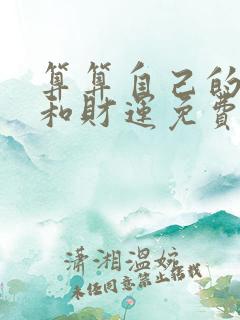 算算自己的
和财运免费
潇湘温婉
未经同意禁止搬栽